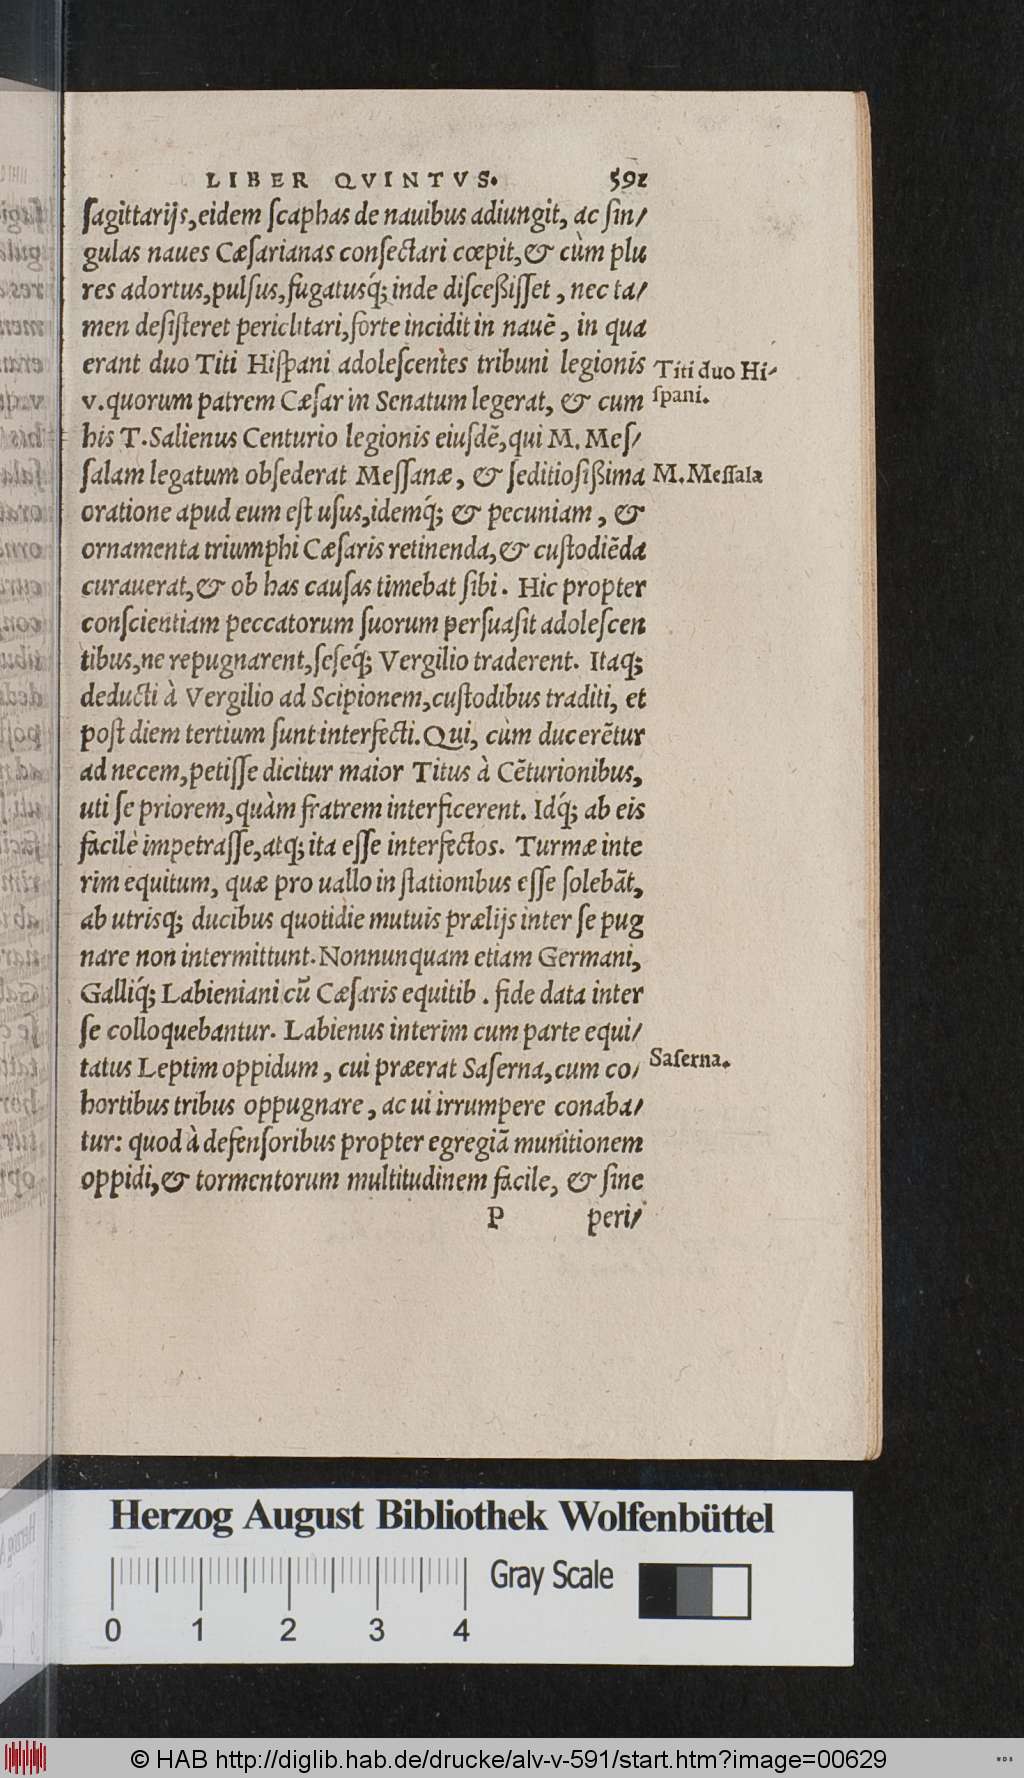 LIBER QVINTVS. 591
ſagittarijs, eidem ſcaphas de nauibus adiungit, ac ſin/
gulas naues Cæſarianas conſectari cœpit, & cùm plu
res adortus, pulſus, fugatusq́; inde diſceßiſſet, nec ta/
men deſiſteret periclitari, forte incidit in nauē, in qua
erant duo Titi Hiſpani adoleſcentes tribuni legionis
Titi duo Hi-
v. quorum patrem Cæſar in Senatum legerat, & cum
ſpani.
his T. Salienus Centurio legionis eiuſdē, qui M. Meſ/
ſalam legatum obſederat Meſſanæ, & ſeditioſißima
M. Meſſala
oratione apud eum eſt uſus, idemq́; & pecuniam, &
ornamenta triumphi Cæſaris retinenda, & cuſtodiēda
curauerat, & ob has cauſas timebat ſibi. Hic propter
conſcientiam peccatorum ſuorum perſuaſit adoleſcen
tibus, ne repugnarent, ſeſeq́; Vergilio traderent. Itaq;
deducti à Vergilio ad Scipionem, cuſtodibus traditi, et
poſt diem tertium ſunt interfecti. Qui, cùm ducerētur
ad necem, petiſſe dicitur maior Titus à Cēturionibus,
uti ſe priorem, quàm fratrem interficerent. Idq́; ab eis
facilè impetraſſe, atq; ita eſſe interfectos. Turmæ inte
rim equitum, quæ pro uallo in ſtationibus eſſe ſolebāt,
ab utrisq; ducibus quotidie mutuis prælijs inter ſe pug
nare non intermittunt. Nonnunquam etiam Germani,
Galliq́; Labieniani cū Cæſaris equitib. fide data inter
ſe colloquebantur. Labienus interim cum parte equi/
tatus Leptim oppidum, cui præerat Saſerna, cum co/
Saſerna.
hortibus tribus oppugnare, ac ui irrumpere conaba/
tur: quod à defenſoribus propter egregiā munitionem
oppidi, & tormentorum multitudinem facile, & ſine
P peri/
Herzog August Bibliothek Wolfenbüttel
Gray Scale
0 1 2 3 4
© HAB http://diglib.hab.de/drucke/alv-v-591/start.htm?image=00629